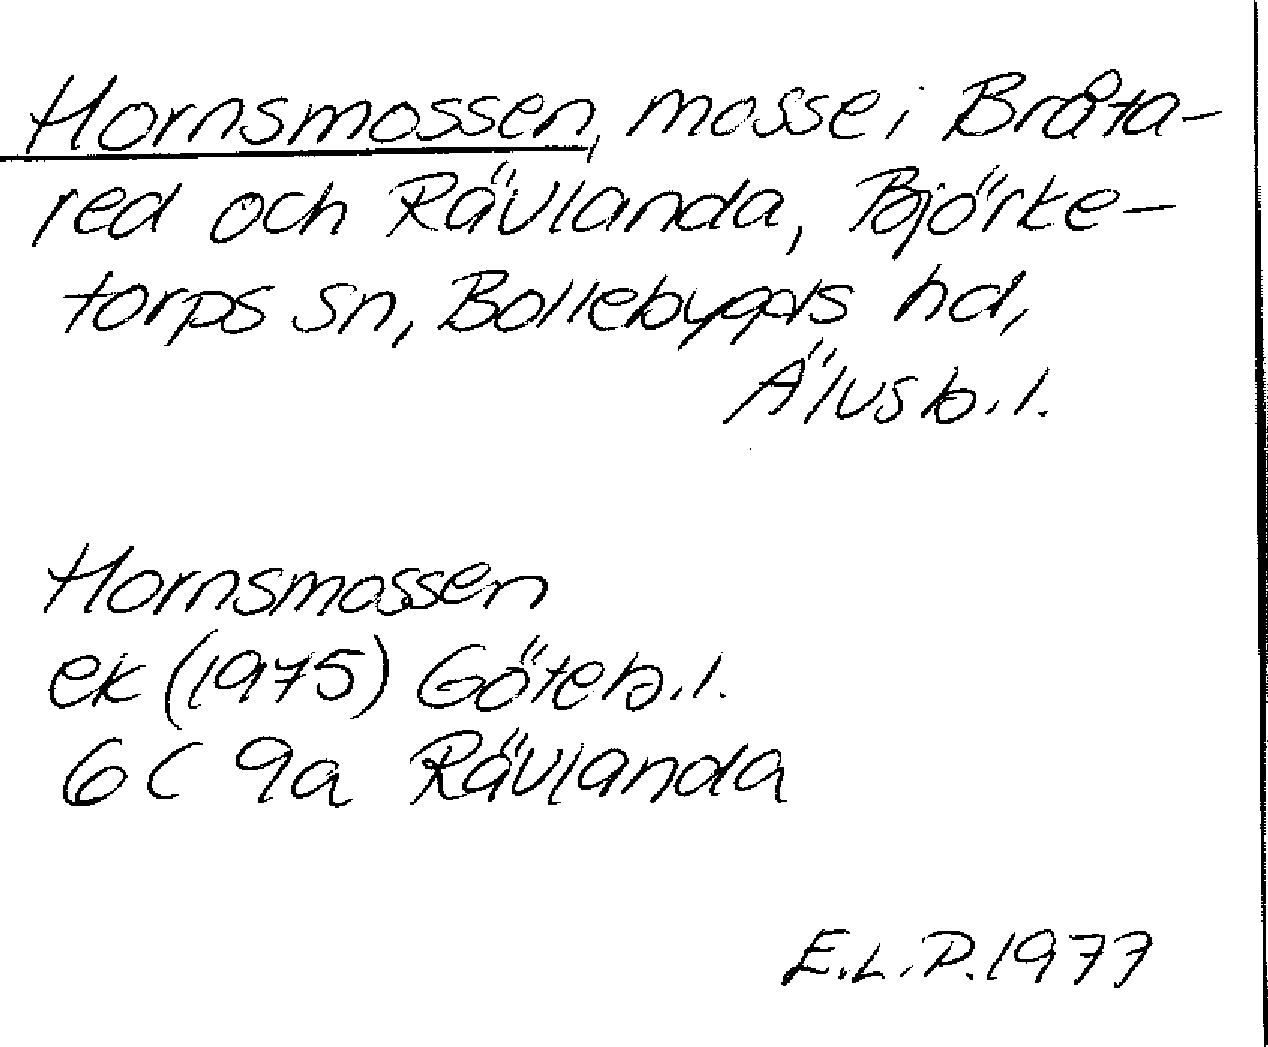 Hornsmossen, mosse i Bråta-
red och Rävlanda, Björke-
torps sn, Bollebygds hd,
Älvsb.l.
Hornsmossen
ek (1975) Göteb.l.
6C 9a Rävlanda
E.L.P. 1977